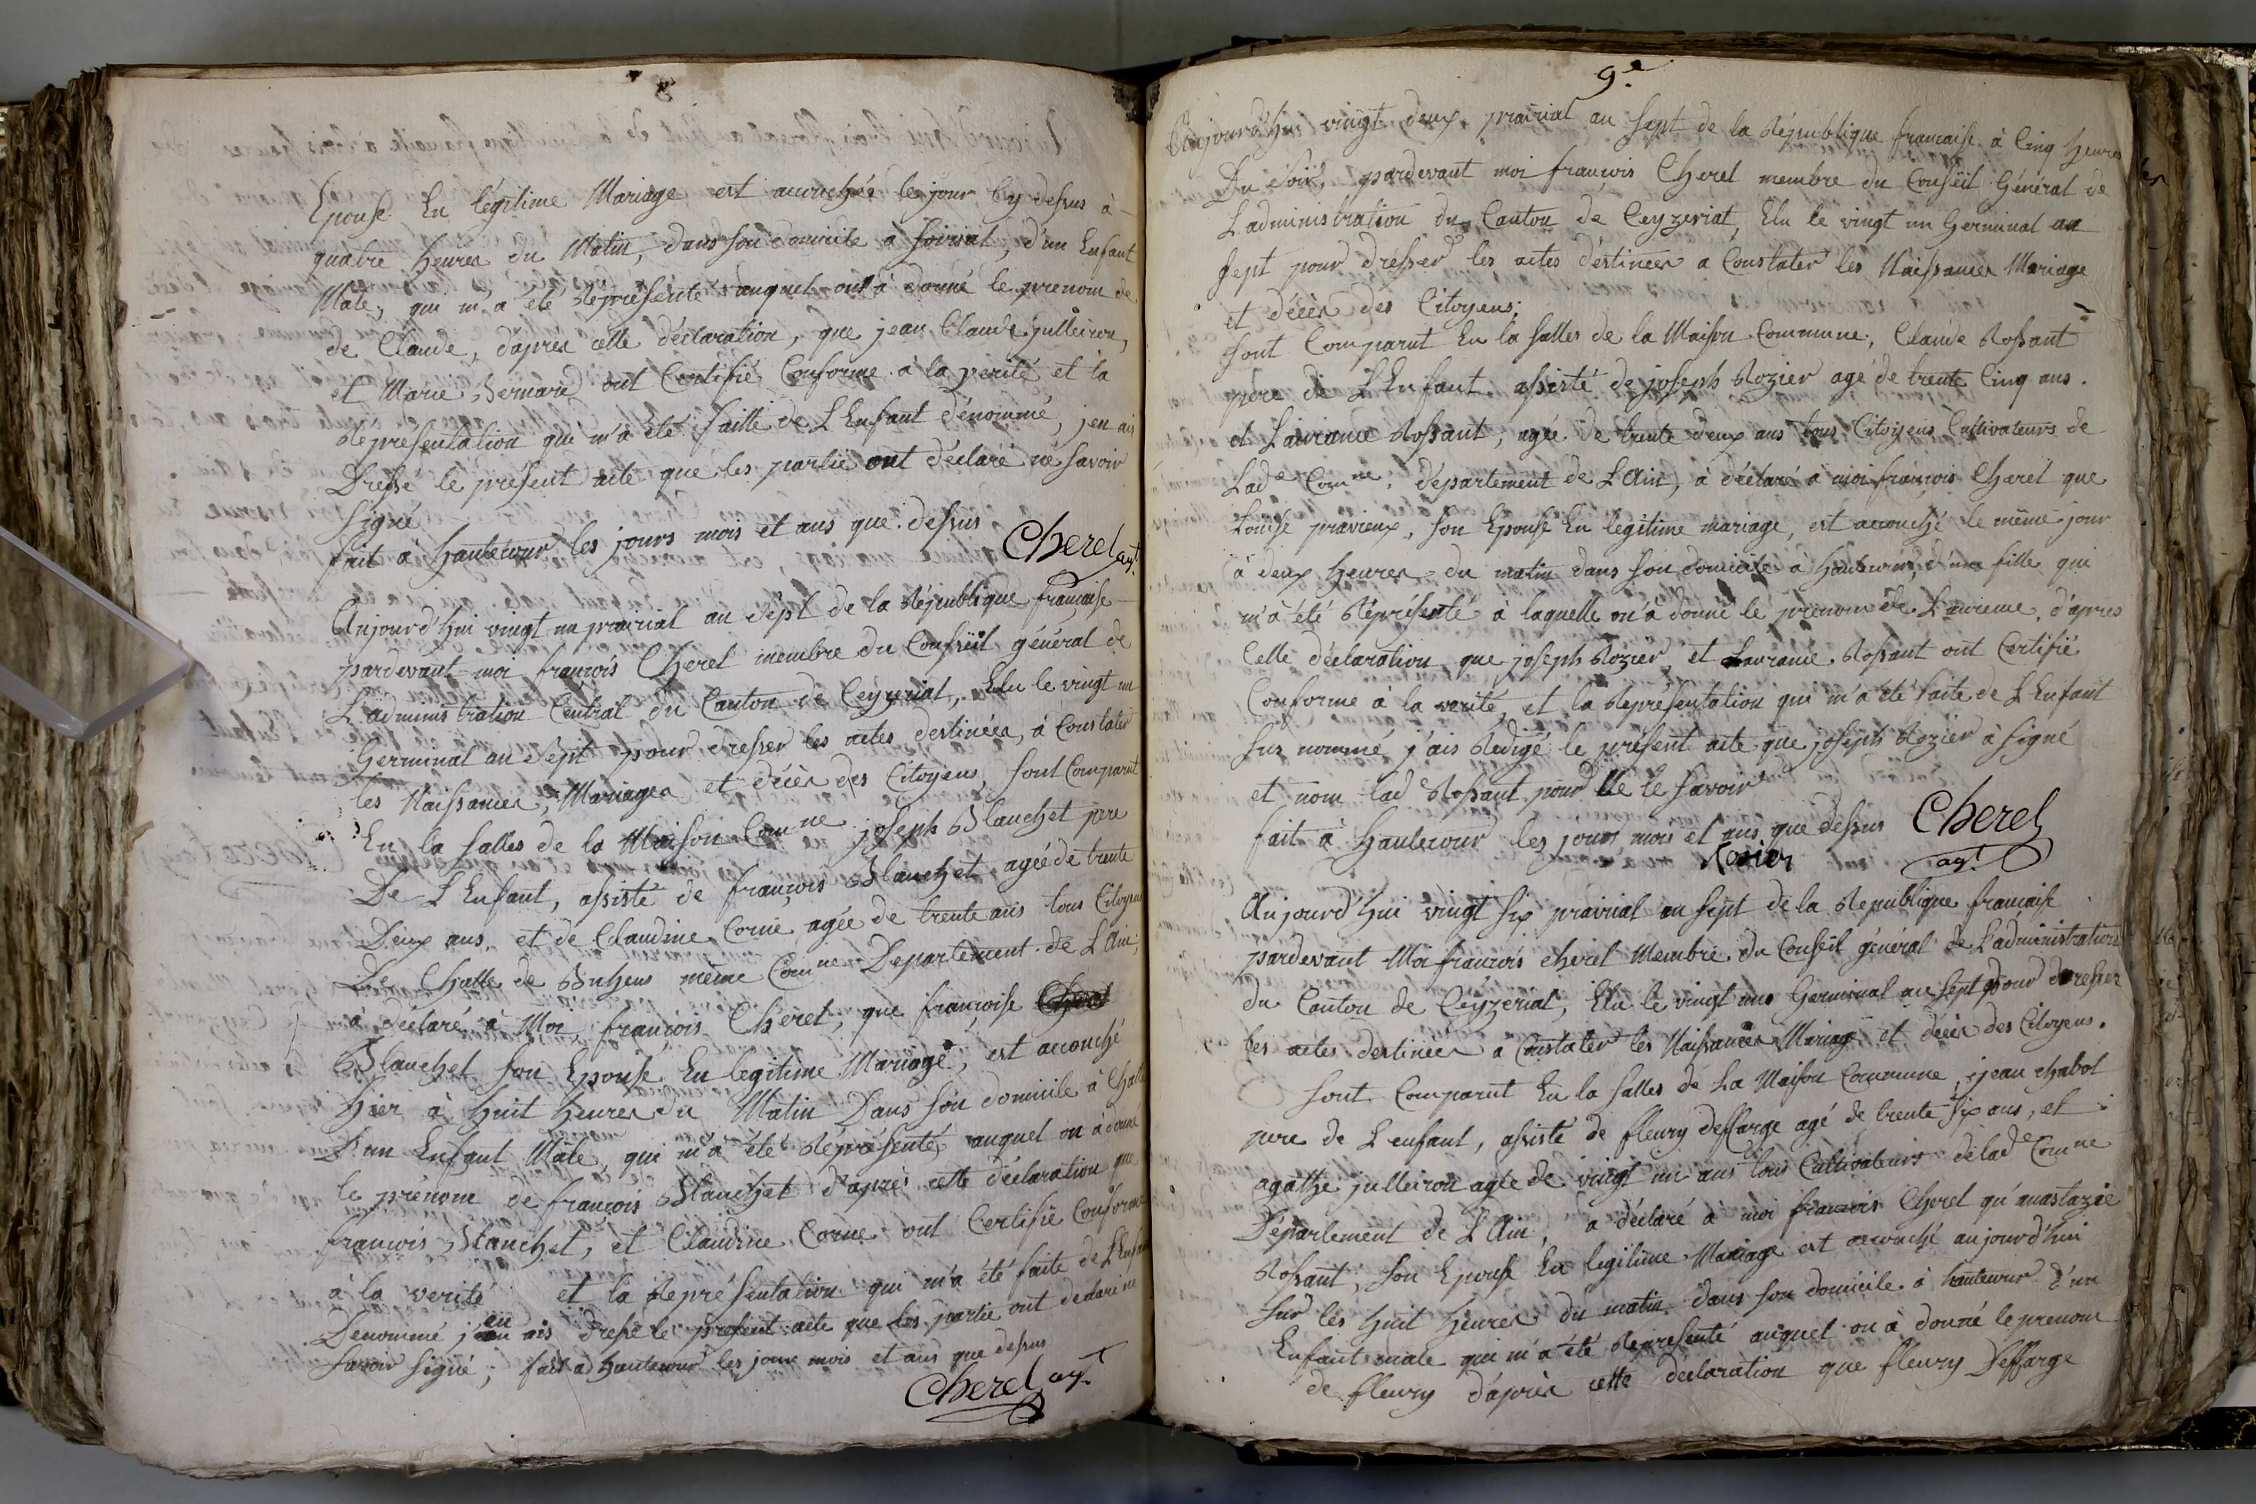 Epouse En légitime Mariage est accouchée le jour Cy dessus à
quatre heures du Matin, dans son domicile à soirvat, d'un Enfant
Male, qui m'a été Représenté auquel on a donné le prenom de
de Claude, d'après celle déclaration, que jean Claude julleiron,
et Marie Bernard ont Certifié Conforme à la verité et la
Représentation qui m'a été faitte de L'Enfant dénommé, j'en ais
Dressé le présent acte que les partie ont déclaré né savoir
Signé
fait à hautecour les jours mois et ans que dessus
Cherel agt.
Aujourd'hui vingt un prairial an sept de la République française
pardevant moi françois Cherel membre du Conseil général de
L'administration Central du Canton de Ceyzeriat, Elu le vingt un
Germinal an Sept pour dresser les actes destinéés, à Constater
les Naissances, Mariages et décès des Citoyens, sont Comparut
En la salles de la Maison Comne joseph Blanchet pere
De L'Enfant, assisté de françois Blanchet, agée de trente
Deux ans, et de Claudine Corne agée de trente ans tous Citoyens
De Challe de Buhens même Comne Departement de L'Ain,
à déclaré à Moi françois Cherel, que françoise
Blanchet son Epouse En legitime Mariage, est accouché
hier à huit heures du Matin Dans son domicile à Challe
D'un Enfant Male, qui m'a été Représenté auquel on à donné
le prénom de françois Blanchet d'après cette déclaration que
françois Blanchet, et Claudine Corne ont Certifié Conforme
à la verité et la Représentation qui m'a été faite de L'Enfant
Denommé j'en ais Dressé le present acte que les partie ont declaré ne
savoir signé; fait à hautecour les jour mois et ans que dessus
Cherel agt.
9e
Aujourd'hui vingt deux prairial an sept de la République francaise à Cinq heures
Du soir, pardevant moi françois Cherel membre du Conseil Général de
L'administration du Canton de Ceyzeriat, Elu le vingt un Germinal an
sept pour dresser les actes destinées a Constater les Naissances Mariage
et décès des Citoyens;
sont Comparut En la salles de la Maison Commune, Claude Rossant
père de L'Enfant assisté de joseph Rozier agé de trente Cinq ans.
et Laurance Rossant, agée de trente deux ans tous Citoyens Cultivateurs de
Lade Comne, département de L'Ain, à déclaré à moi françois Cherel que
Louise pravieux, son Epouse En legitime mariage, est accouché le même jour
à deux heures du matin dans son domicile à hautecour, d'une fille qui
m'a été Réprésenté à laquelle on a donné le prenom de Laurence, d'apres
Celle déclaration que joseph Rozier, et Laurance Rossant ont Certifié
Conforme à la verité, et la Représentation qui m'a été faite de L'Enfant
sus nommé j'ais Redigé le présent acte que joseph Rozier à signé
et nom lad Rossant pour ne le savoir
fait à hautecour les jour, mois et ans que dessus
Cherel
Rozier
agt
Aujourd'hui vingt six prairial an sept de la Republique francaise
pardevant Moi françois cherel Membre du Conseil général de L'administration
du Canton de Ceyzeriat, Elu le vingt une Germinal an sept pour dresser
les actes destinées a Constater les Naissances Mariag et décès des Citoyens.
sont Comparut En la salles de La Maison Commune, jean chabot
pere de L'enfant, assisté de fleury deffarge agé de trente six ans, et
agathe julleiron agée de vingt un ans tous Cultivateurs de lade Comne
Département de L'Ain, à déclaré à moi francois Cherel qu'anastazie
Rossant, son Epouse En legitime Mariage est accouché aujourd'hui
sur les huit heures du matin dans son domicile à hautecour d'un
Enfant male qui m'a été Representé auquel on à donné le prenom
de fleury d'après cette déclaration que fleury Deffarge